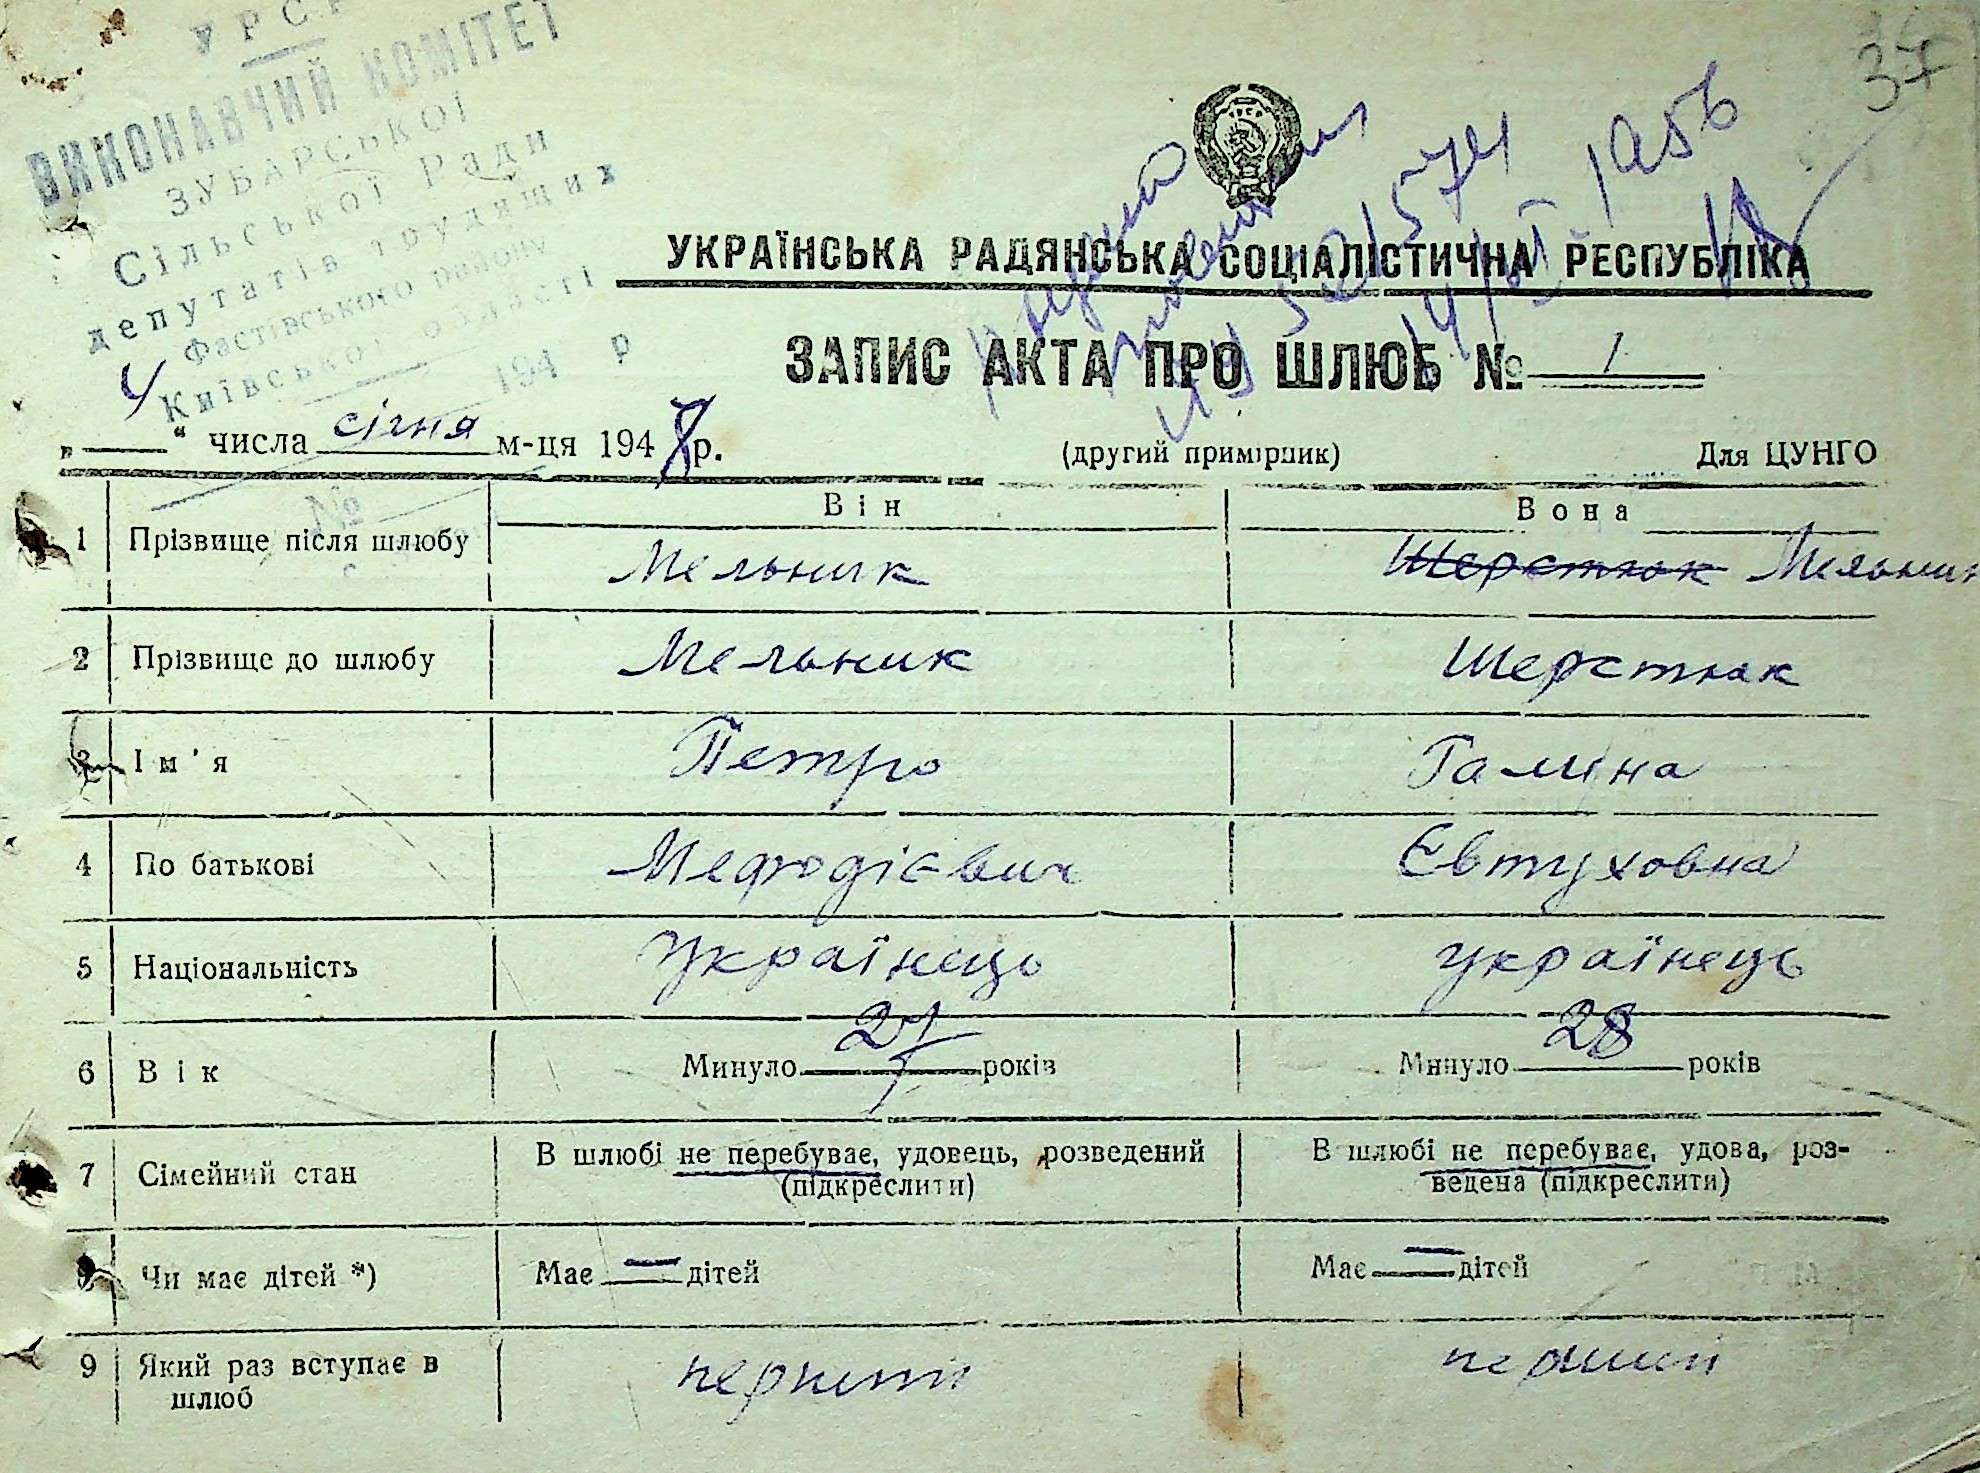 УРСР
ВИКОНАВЧИЙ КОМІТЕТ
ЗУБАРСЬКОЇ
Сільської Ради
депутатів трудящих
Фастівського району
Київської області
194 р
№
37
УКРАЇНСЬКА РАДЯНСЬКА СОЦІАЛІСТИЧНА РЕСПУБЛІКА
14/VI 1956
ЗАПИС АКТА ПРО ШЛЮБ № 1
„ 4 “ числа січня м-ця 1948 р.
(другий примірник) Для ЦУНГО
Він Вона
1 Прізвище після шлюбу Мельник Шерстюк Мельник
2 Прізвище до шлюбу Мельник Шерстюк
3 Ім'я Петро Галина
4 По батькові Мефодієвич Євтуховна
5 Національність Українець українець
6 Вік Минуло 27 років Минуло 28 років
7 Сімейний стан В шлюбі не перебуває, удовець, розведений (підкреслити) В шлюбі не перебуває, удова, роз-
ведена (підкреслити)
8 Чи має дітей *) Має — дітей Має — дітей
9 Який раз вступає в перший перший
шлюб